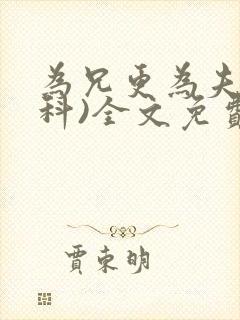 為兄更為夫
科)全文免費
賈東明